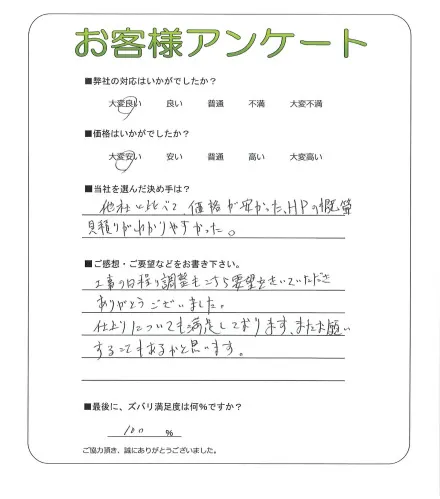 お客様アンケート
■弊社の対応はいかがでしたか？
大変良い 良い 普通 不満 大変不満
■価格はいかがでしたか？
大変安い 安い 普通 高い 大変高い
■当社を選んだ決め手は？
他社に比べて、価格が安かった、HPの概算
見積りがわかりやすかった。
■ご感想・ご要望などをお書き下さい。
工事の日程り調整もこちら要望をきいていただき
ありがとうございました。
仕上りについても満足しております、またお願い
することもあるかと思います。
■最後に、ズバリ満足度は何%ですか？
100 %
ご協力頂き、誠にありがとうございました。